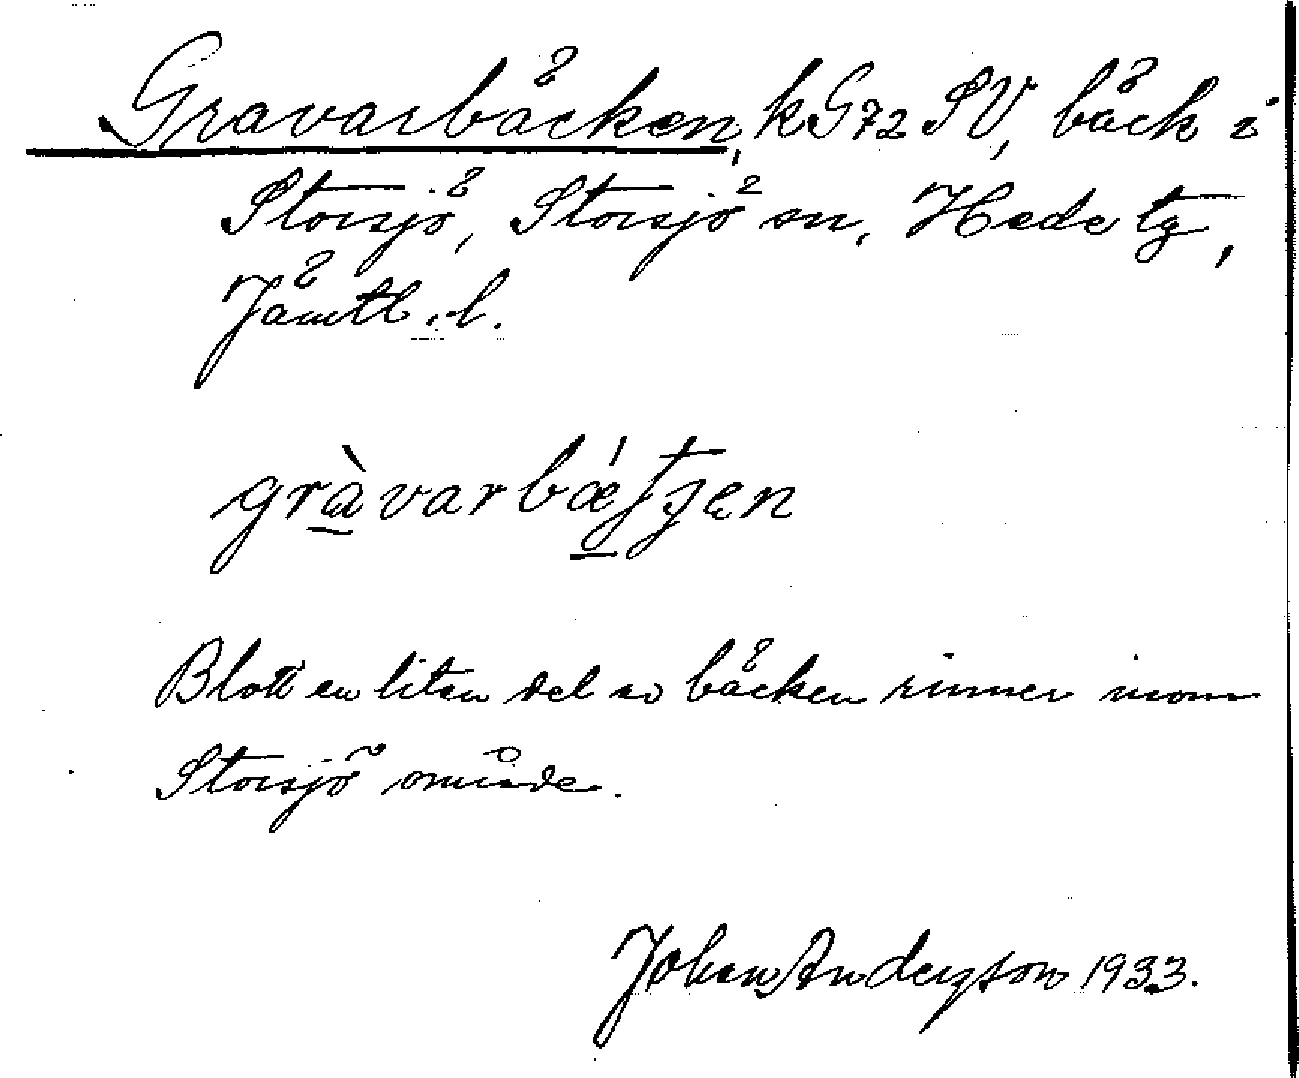 Gravarbäcken, kG72 SV, bäck i
Storsjö, Storsjö sn, Hede tg,
Jämtl. l.
Blott en liten del av bäcken rinner inom
Storsjö område.
Johan Anderzson 1933.